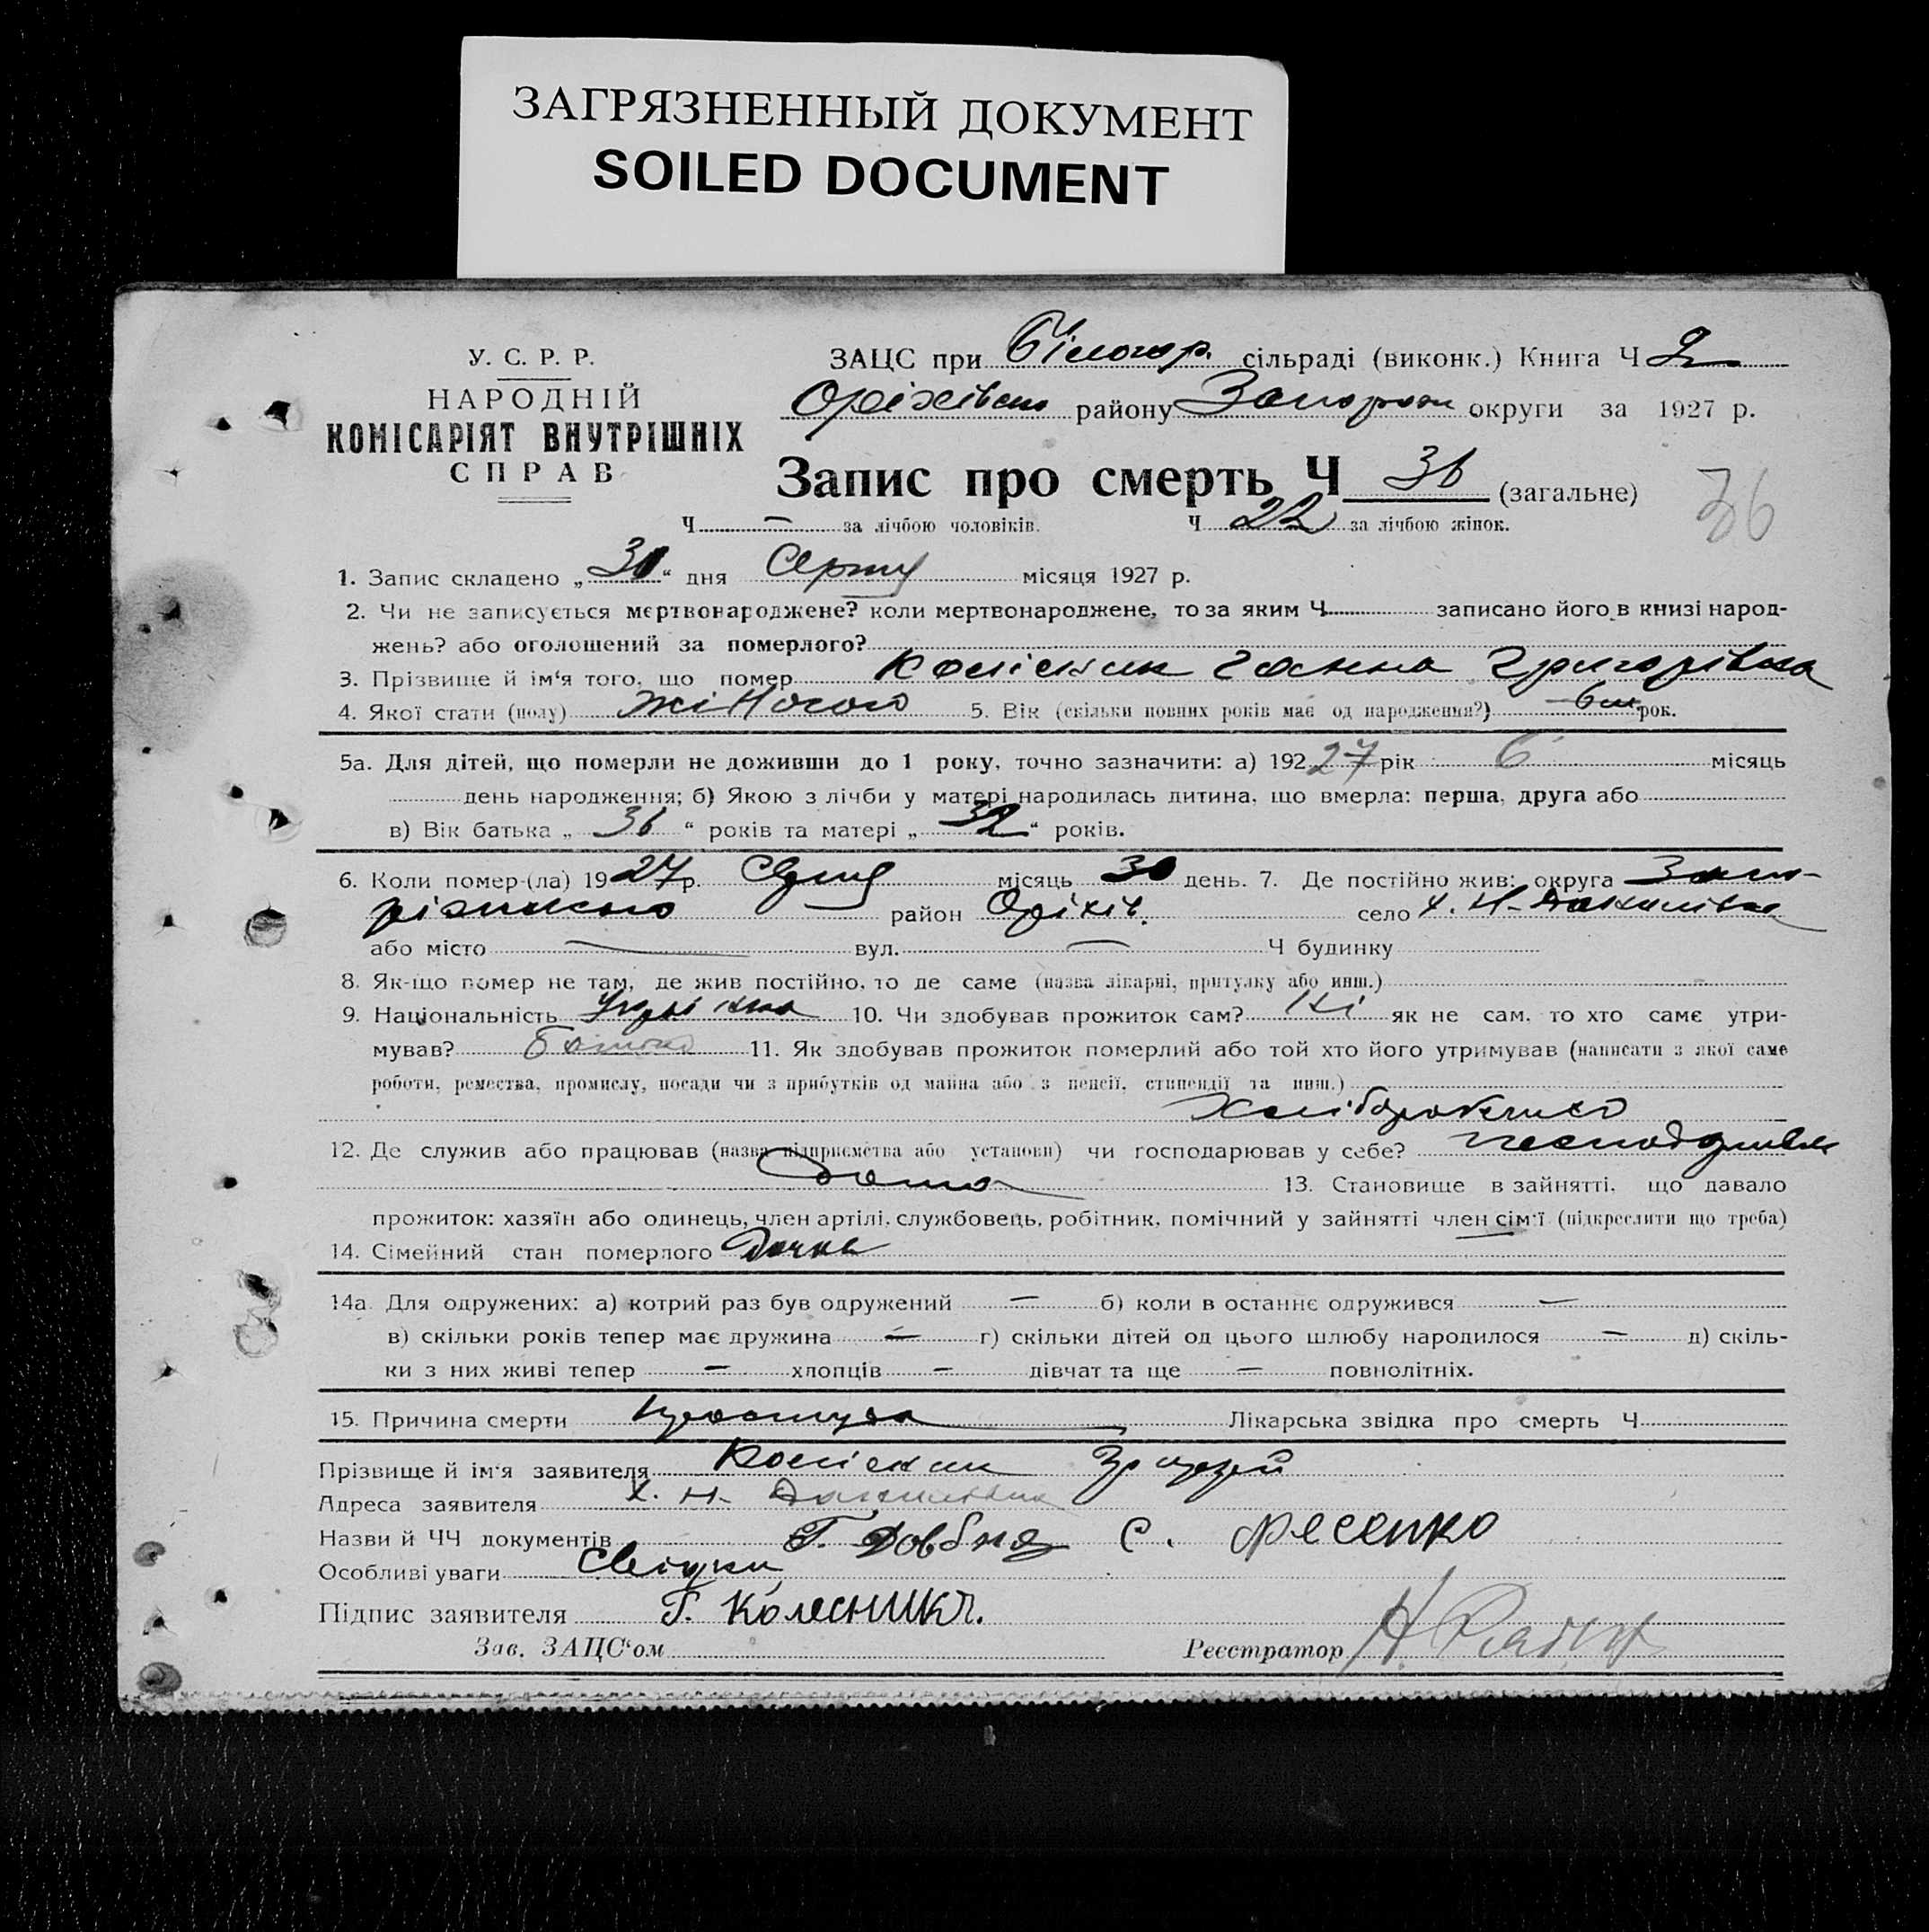 ЗАГРЯЗНЕННЫЙ ДОКУМЕНТ
SOILED DOCUMENT
У. С. Р. Р.
НАРОДНІЙ
КОМІСАРІЯТ ВНУТРІШНІХ
СПРАВ
ЗАЦС при Білогор. сільраді (виконк.) Книга Ч 2
Оріхівсько району Запорізьк округи за 1927 р.
Запис про смерть Ч 36 (загальне)
36
Ч — за лічбою чоловіків. Ч 22 за лічбою жінок.
1. Запис складено „30“ дня Серпня місяця 1927 р.
2. Чи не записується мертвонароджене? коли мертвонароджене, то за яким Ч записано його в книзі народ-
жень? або оголошений за померлого?
3. Прізвище й ім‘я того, що помер Колісник Ганна Григорівна
4. Якої стати (полу) жіночого 5. Вік (скільки повних років має од народження?) 6 м. рок.
5а. Для дітей, що померли не доживши до 1 року, точно зазначити: а) 192 27 рік 6 місяць
день народження; б) Якою з лічби у матері народилась дитина, що вмерла: перша, друга або
в) Вік батька „36“ років та матері „32“ років.
6. Коли помер-(ла) 1927 р. Серпня місяць 30 день. 7. Де постійно жив: округа Запо-
різького район Оріхів. село х. Н-Данилівка
або місто — вул. — Ч будинку
8. Як-що помер не там, де жив постійно, то де саме (назва лікарні, притулку або инш.)
9. Національність Українка 10. Чи здобував прожиток сам? Ні як не сам, то хто саме утри-
мував? батько 11. Як здобував прожиток померлий або той хто його утримував (написати з якої саме
роботи, ремества, промислу, посади чи з прибутків од майна або з пенсії, стипендії та инш.)
Хліборобство
12. Де служив або працював (назва підприємства або установи) чи господарював у себе?
дома 13. Становище в зайнятті, що давало
прожиток: хазяїн або одинець, член артілі, службовець, робітник, помічний у зайнятті член сім‘ї (підкреслити що треба)
14. Сімейний стан померлого Дочка
14а. Для одружених: а) котрий раз був одружений — б) коли в останнє одружився —
в) скільки років тепер має дружина — г) скільки дітей од цього шлюбу народилося — д) скіль-
ки з них живі тепер — хлопців — дівчат та ще — повнолітніх.
15. Причина смерти простуда Лікарська звідка про смерть Ч
Прізвище й ім‘я заявителя Колісник
Адреса заявителя х. Н- Данилівка
Назви й ЧЧ документів Г. Довбня С. Фесенко
Особливі уваги Свідки
Підпис заявителя Г. Колесникъ.
Зав. ЗАЦС‘ом Реєстратор